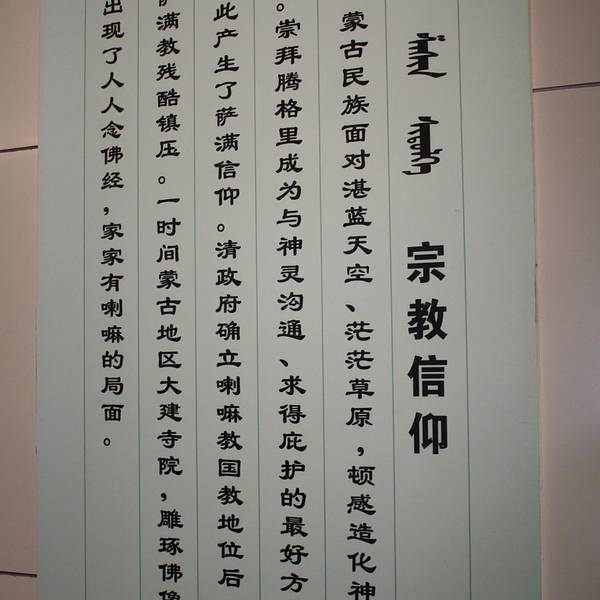 宗教信仰
蒙古民族面对湛蓝天空、茫茫草原，顿感造化神
。崇拜腾格里成为与神灵沟通、求得庇护的最好方
此产生了萨满信仰。清政府确立喇嘛教国教地位后
萨满教残酷镇压。一时间蒙古地区大建寺院，雕琢佛像
出现了人人念佛经，家家有喇嘛的局面。